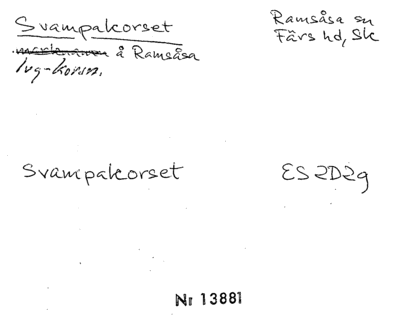 Svampakorset
Ramsåsa sn
Färs hd, Sk
å Ramsåsa
lvg-korsn.
Svampakorset
ES 2D2g
Nr 13881